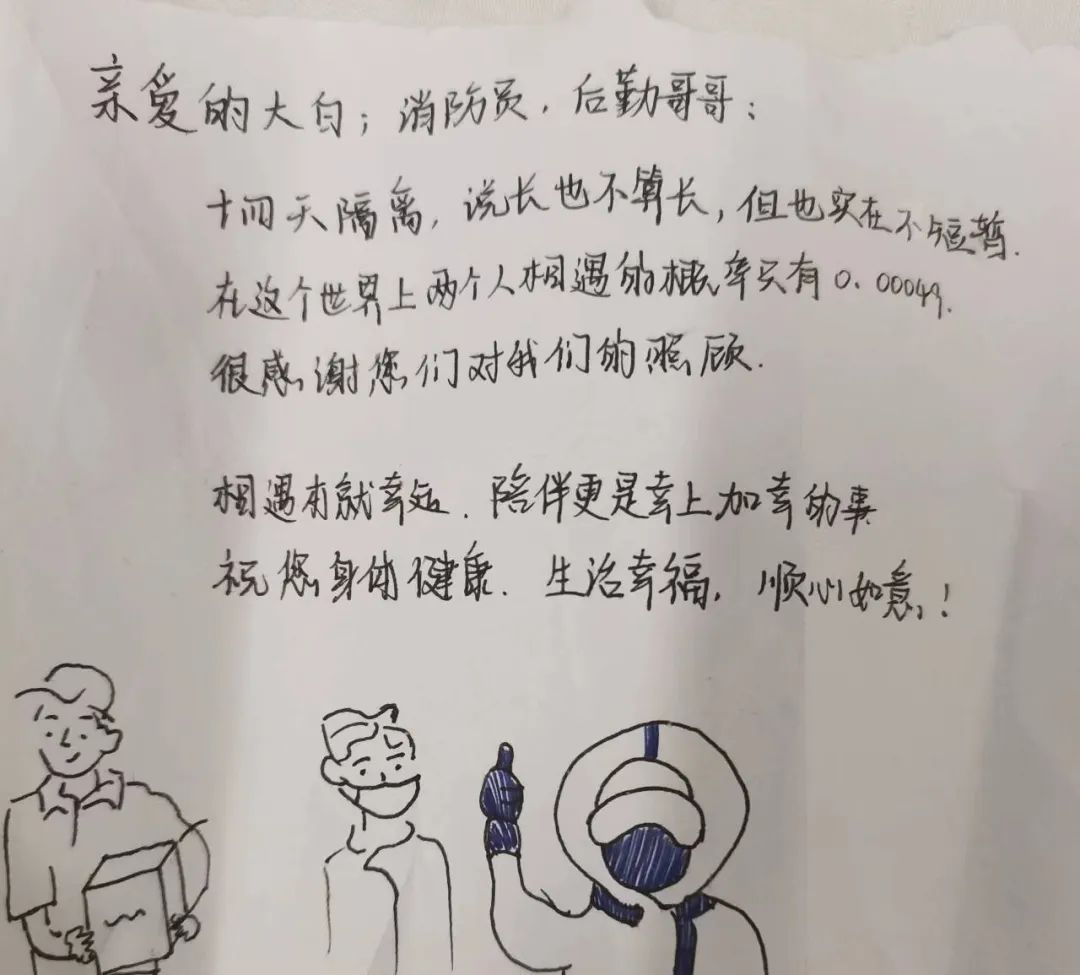 亲爱的大白；消防员，后勤哥哥：
十四天隔离，说长也不算长，但也实在不短暂.
在这个世界上两个人相遇的概率只有0.00049.
很感谢您们对我们的照顾.
相遇本就幸运.陪伴更是幸上加幸的事
祝您身体健康.生活幸福，顺心如意！